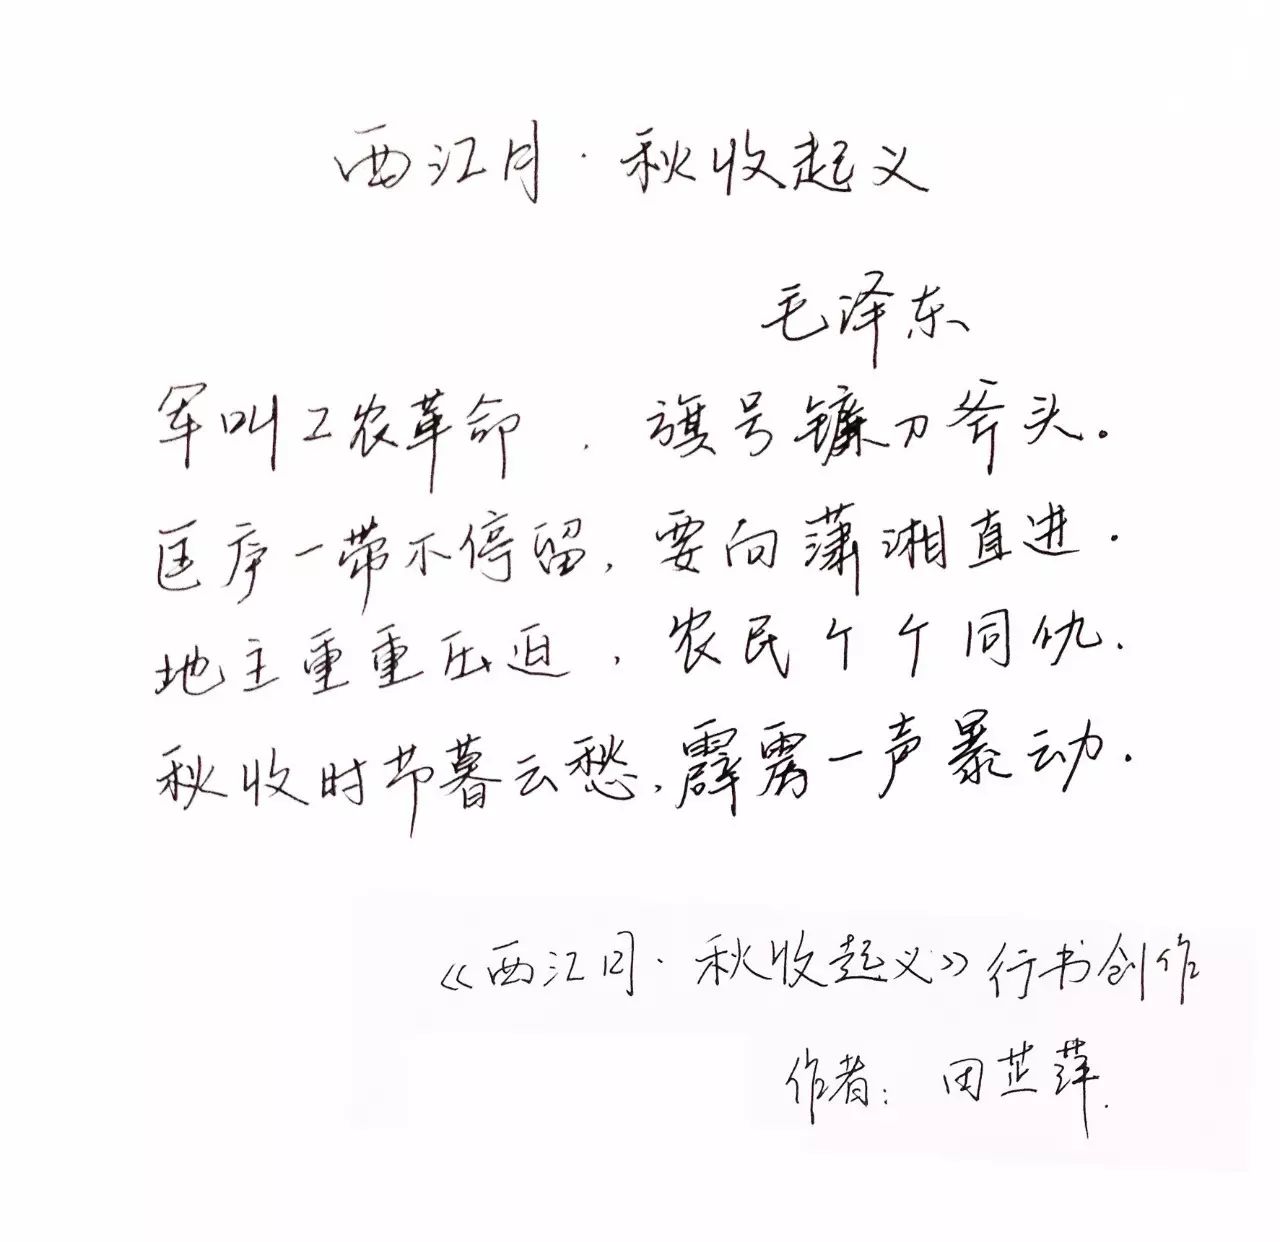 西江月·秋收起义
毛泽东
军叫工农革命，旗号镰刀斧头。
匡庐一带不停留，要向潇湘直进。
地主重重压迫，农民个个同仇。
秋收时节暮云愁，霹雳一声暴动。
《西江月·秋收起义》行书创作
作者：田芷萍